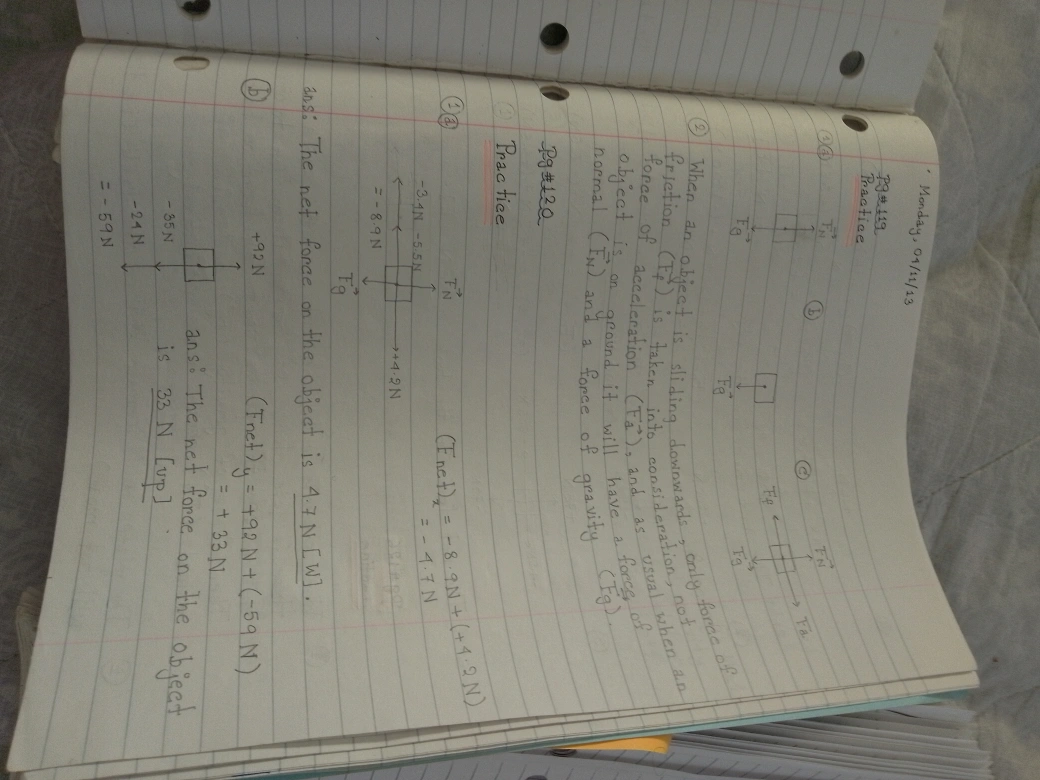 Monday, 04/11/13
Pg#119
Practice
1a
b
c
FN
Fg
Fg
FN
Ff
Fa
Fg
2 When an object is sliding downwards, only force of
friction (Ff) is taken into consideration, not
force of acceleration (Fa), and as usual when an
object is on ground it will have a force of
normal (FN) and a force of gravity (Fg).
Pg#120
Practice
1a
FN
-3.4N -5.5N
→+4.2N
= -8.9N
Fg
(Fnet)x = -8.9N+(+4.2N)
= -4.7N
ans: The net force on the object is 4.7N [W].
b
+92N
-35N
-24N
= -59N
(Fnet)y = +92N+(-59N)
= +33N
ans: The net force on the object
is 33 N [up].